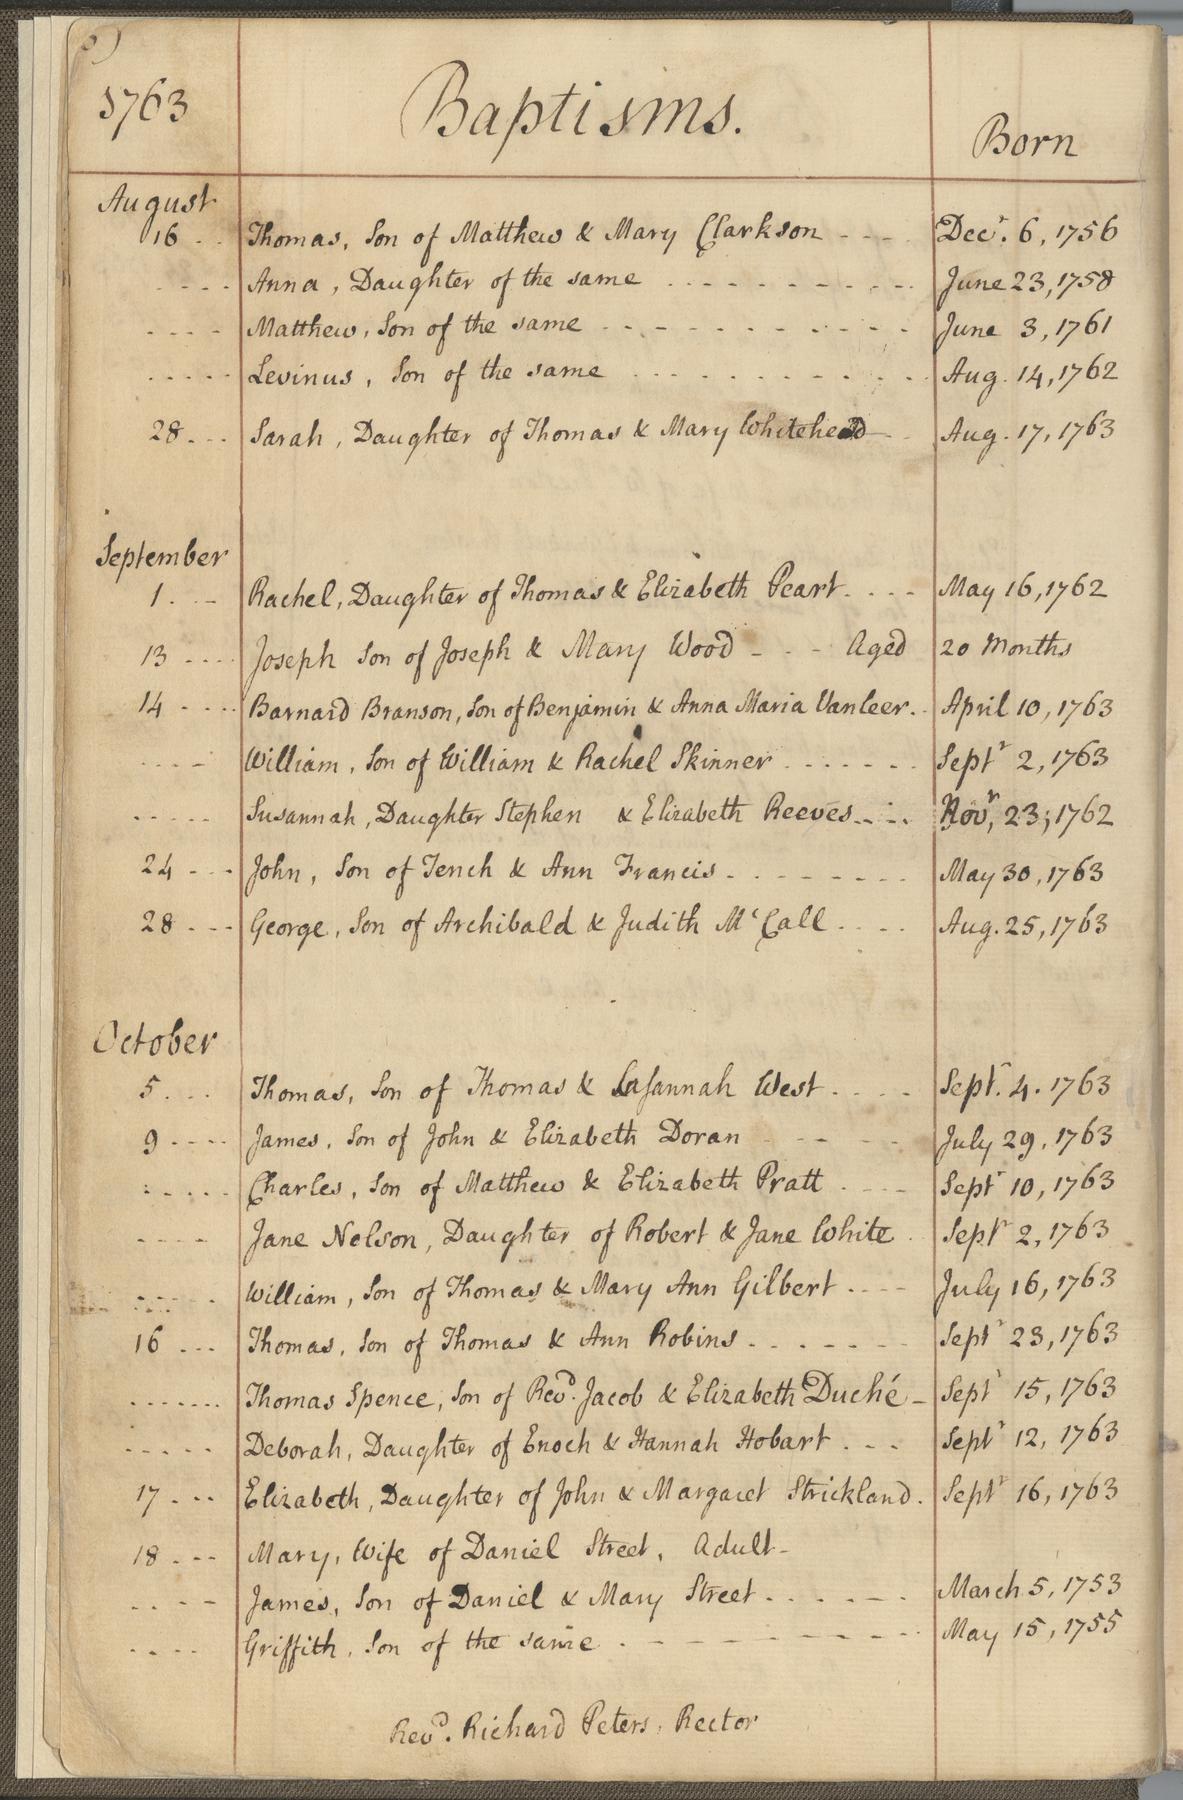 1763 Baptisms. Born
August
16 .. Thomas, Son of Matthew & Mary Clarkson - - - - Decr. 6, 1756
- - - - Anna, Daughter of the same - - - - - - - - - - - June 23, 1758
- - - - Matthew, Son of the same - - - - - - - - - - - - June 3, 1761
- - - - - Levinus, Son of the same - - - - - - - - - - - Aug. 14, 1762
28 - - - Sarah, Daughter of Thomas & Mary Whitehead - - Aug. 17, 1763
September
1 . - - Rachel, Daughter of Thomas & Elizabeth Peart. - - - May 16, 1762
13 - - - - Joseph Son of Joseph & Mary Wood - - - Aged 20 Months
14 - - - - Barnard Branson, Son of Benjamin & Anna Maria Vanleer. - April 10, 1763
- - - - William, Son of William & Rachel Skinner - - - - - - - Septr 2, 1763
- - - - - Susannah, Daughter Stephen & Elizabeth Reeves - - - - Novr, 23, 1762
24 - - - John, Son of Tench & Ann Francis - - - - - - - - May 30, 1763
28 - - - George, Son of Archibald & Judith McCall - - - - Aug. 25, 1763
October
5 - - - Thomas, Son of Thomas & Susannah West - - - - Septr. 4. 1763
9 - - - - James, Son of John & Elizabeth Doran - - - - - July 29, 1763
- - - - - Charles, Son of Matthew & Elizabeth Pratt - - - - Septr 10, 1763
- - - - Jane Nelson, Daughter of Robert & Jane White . Septr 2, 1763
- - - - - William, Son of Thomas & Mary Ann Gilbert - - - - July 16, 1763
16 - - - Thomas, Son of Thomas & Ann Robins - - - - - - - Septr 23, 1763
- - - - - - - Thomas Spence, Son of Revd. Jacob & Elizabeth Duché - Septr 15, 1763
- - - - - Deborah, Daughter of Enoch & Hannah Hobart - - - Septr 12, 1763
17 - - - Elizabeth, Daughter of John & Margaret Strickland. Septr 16, 1763
18 - - - Mary, Wife of Daniel Street, Adult -
- - - - James, Son of Daniel & Mary Street - - - - - - March 5, 1753
- - - - Griffith, Son of the same - - - - - - - - - May 15, 1755
Revd. Richard Peters, Rector